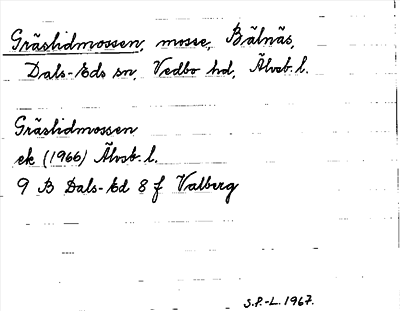 Gräslidmossen, mosse, Bälnäs,
Dals-Eds sn, Vedbo hd, Älvsb. l.
Gräslidmossen
ek (1966) Älvsb. l.
9 B Dals-Ed 8 f Valberg
S.P.-L. 1967.